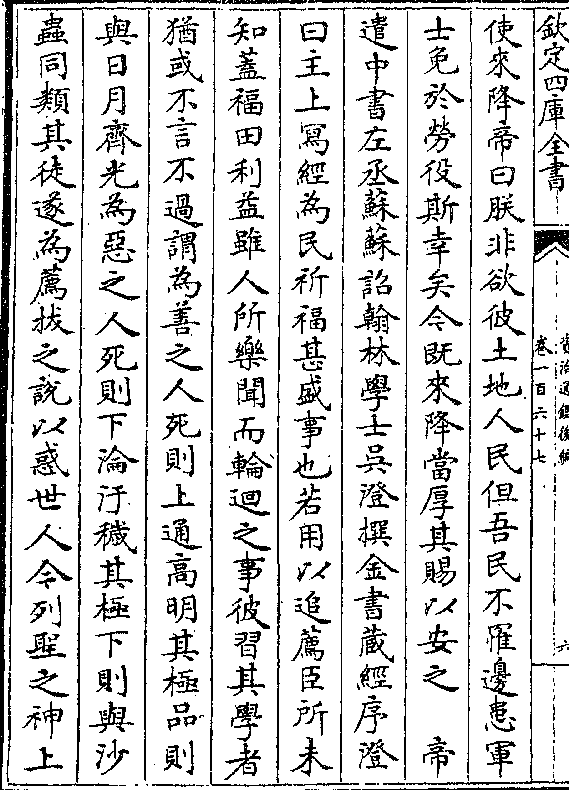 欽定四庫全書
資治通鑑後編
卷一百六十七
六
使來降帝曰朕非欲彼土地人民但吾民不罹邊患軍
士免於勞役斯幸矣今既來降當厚其賜以安之　帝
遣中書左丞蘇蘇詔翰林學士吳澄撰金書藏經序澄
曰主上寫經為民祈福甚盛事也若用以追薦臣所未
知蓋福田利益雖人所樂聞而輪迴之事彼習其學者
猶或不言不過謂為善之人死則上通高明其極品則
與日月齊光為惡之人死則下淪汙穢其極下則與沙
蟲同類其徒遂為薦拔之說以惑世人今列聖之神上